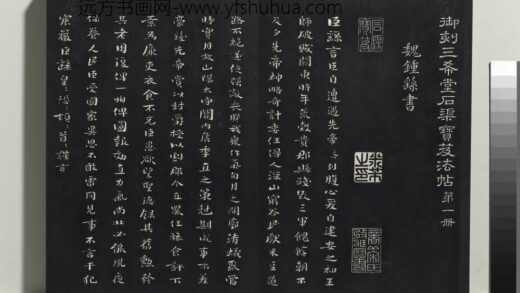 远方书画网 - www.yftshuhua.com
御刻三希堂石渠寶笈法帖 第一冊
魏鍾繇書
臣繇言臣自遭遇先帝忝列腹心爰自建安之初王
師破賊關東時年荒穀貴郡縣殘毀三軍餽饟朝不
及夕先帝神略奇計委任得人深山窮谷民獻米豆道
路不絕遂使強敵喪膽我衆作氣旬月之間廓清蟻聚當
時實用故山陽太守關內侯季直之策剋期成事不差
豪髮先帝賞以封爵授以劇郡今直罷任旅食許下
素為廉吏衣食不充臣愚欲望聖德錄其舊勳矜
其老困復俾一州俾圖報效直力氣尚壯必能夙夜
保養人民臣受國家異恩不敢雷同見事不言干犯
宸嚴臣繇皇〻恐〻頓〻首〻謹言